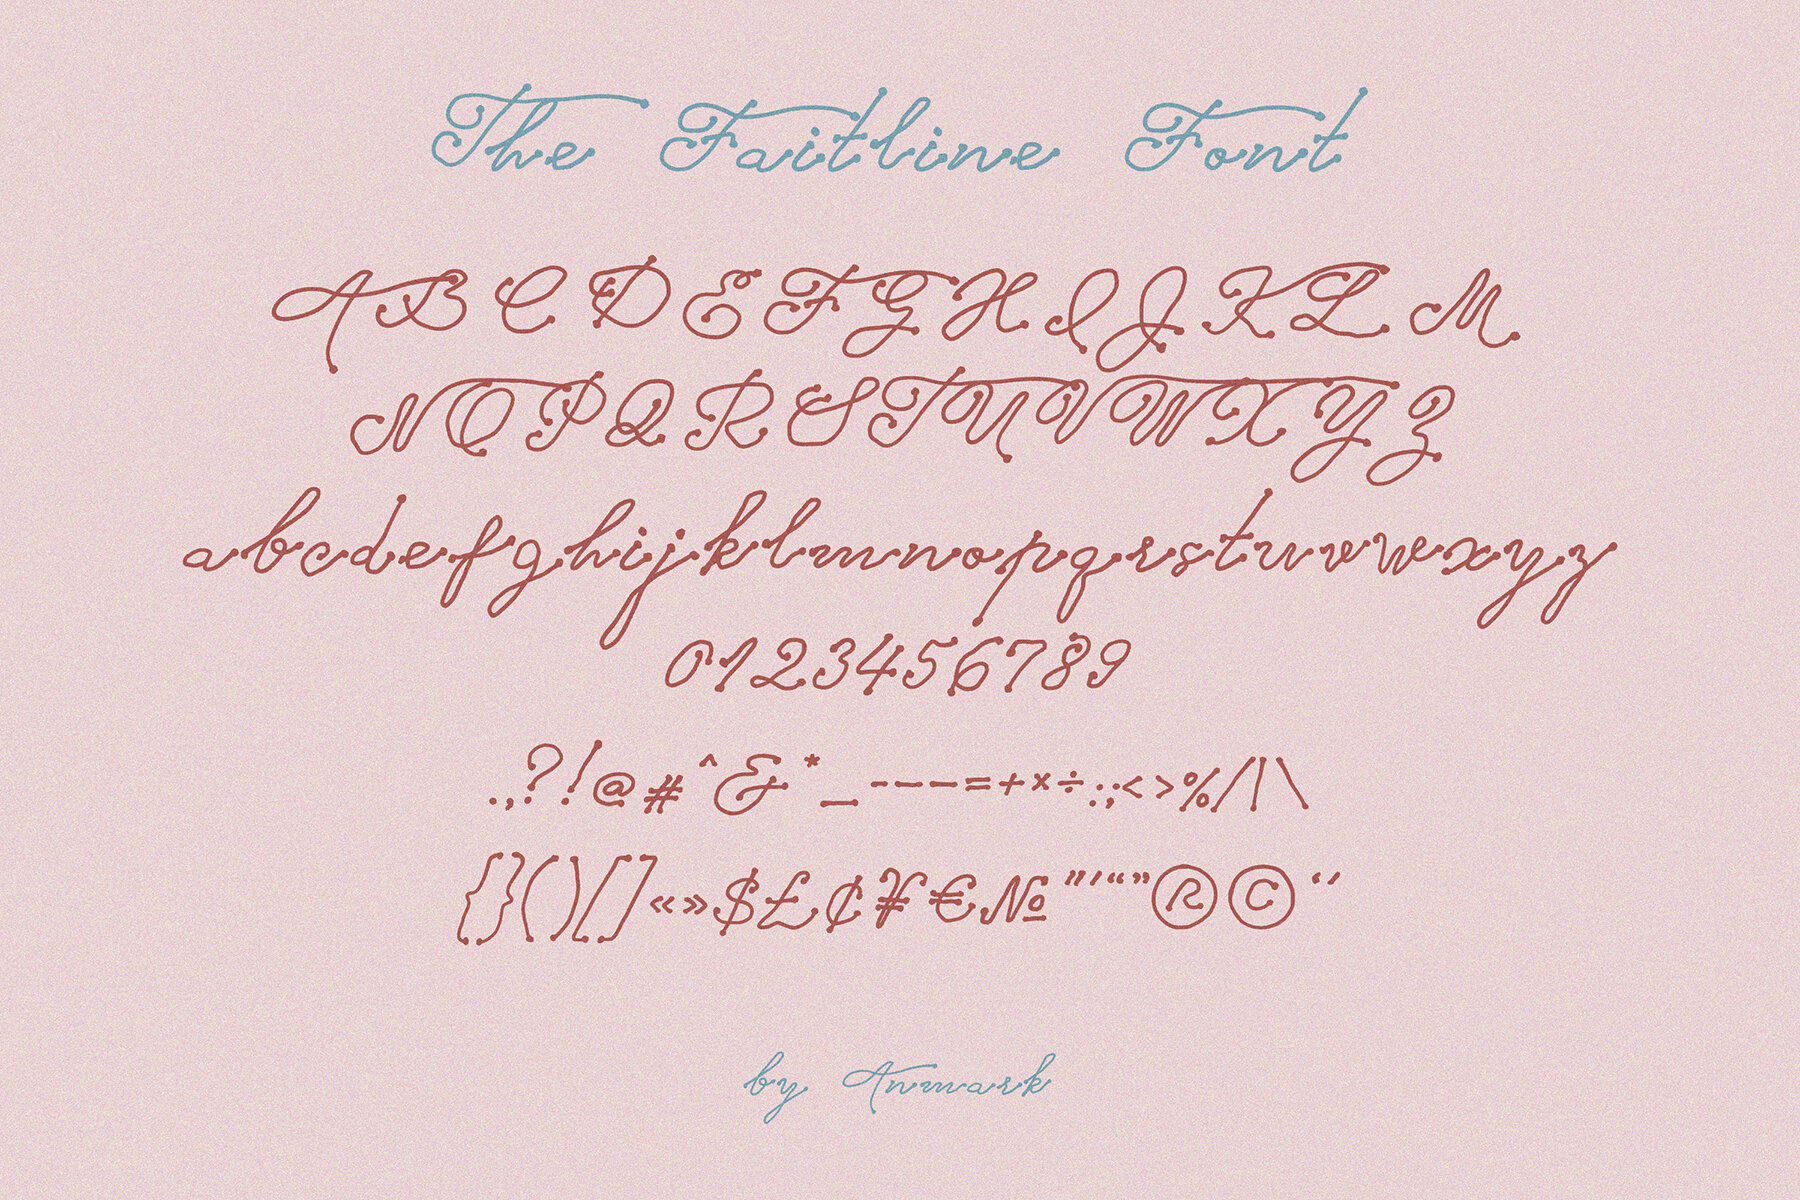 The Faitline Font
A B C D E F G H I J K L M
N O P Q R S T U V W X Y Z
abcdefghijklmnopqrstuvwxyz
0123456789
.,?!@#^&*_-–—=+×÷:;<>%/|\
{}()[]«»$£¢¥€№"'“”®©‘’
by Anmark